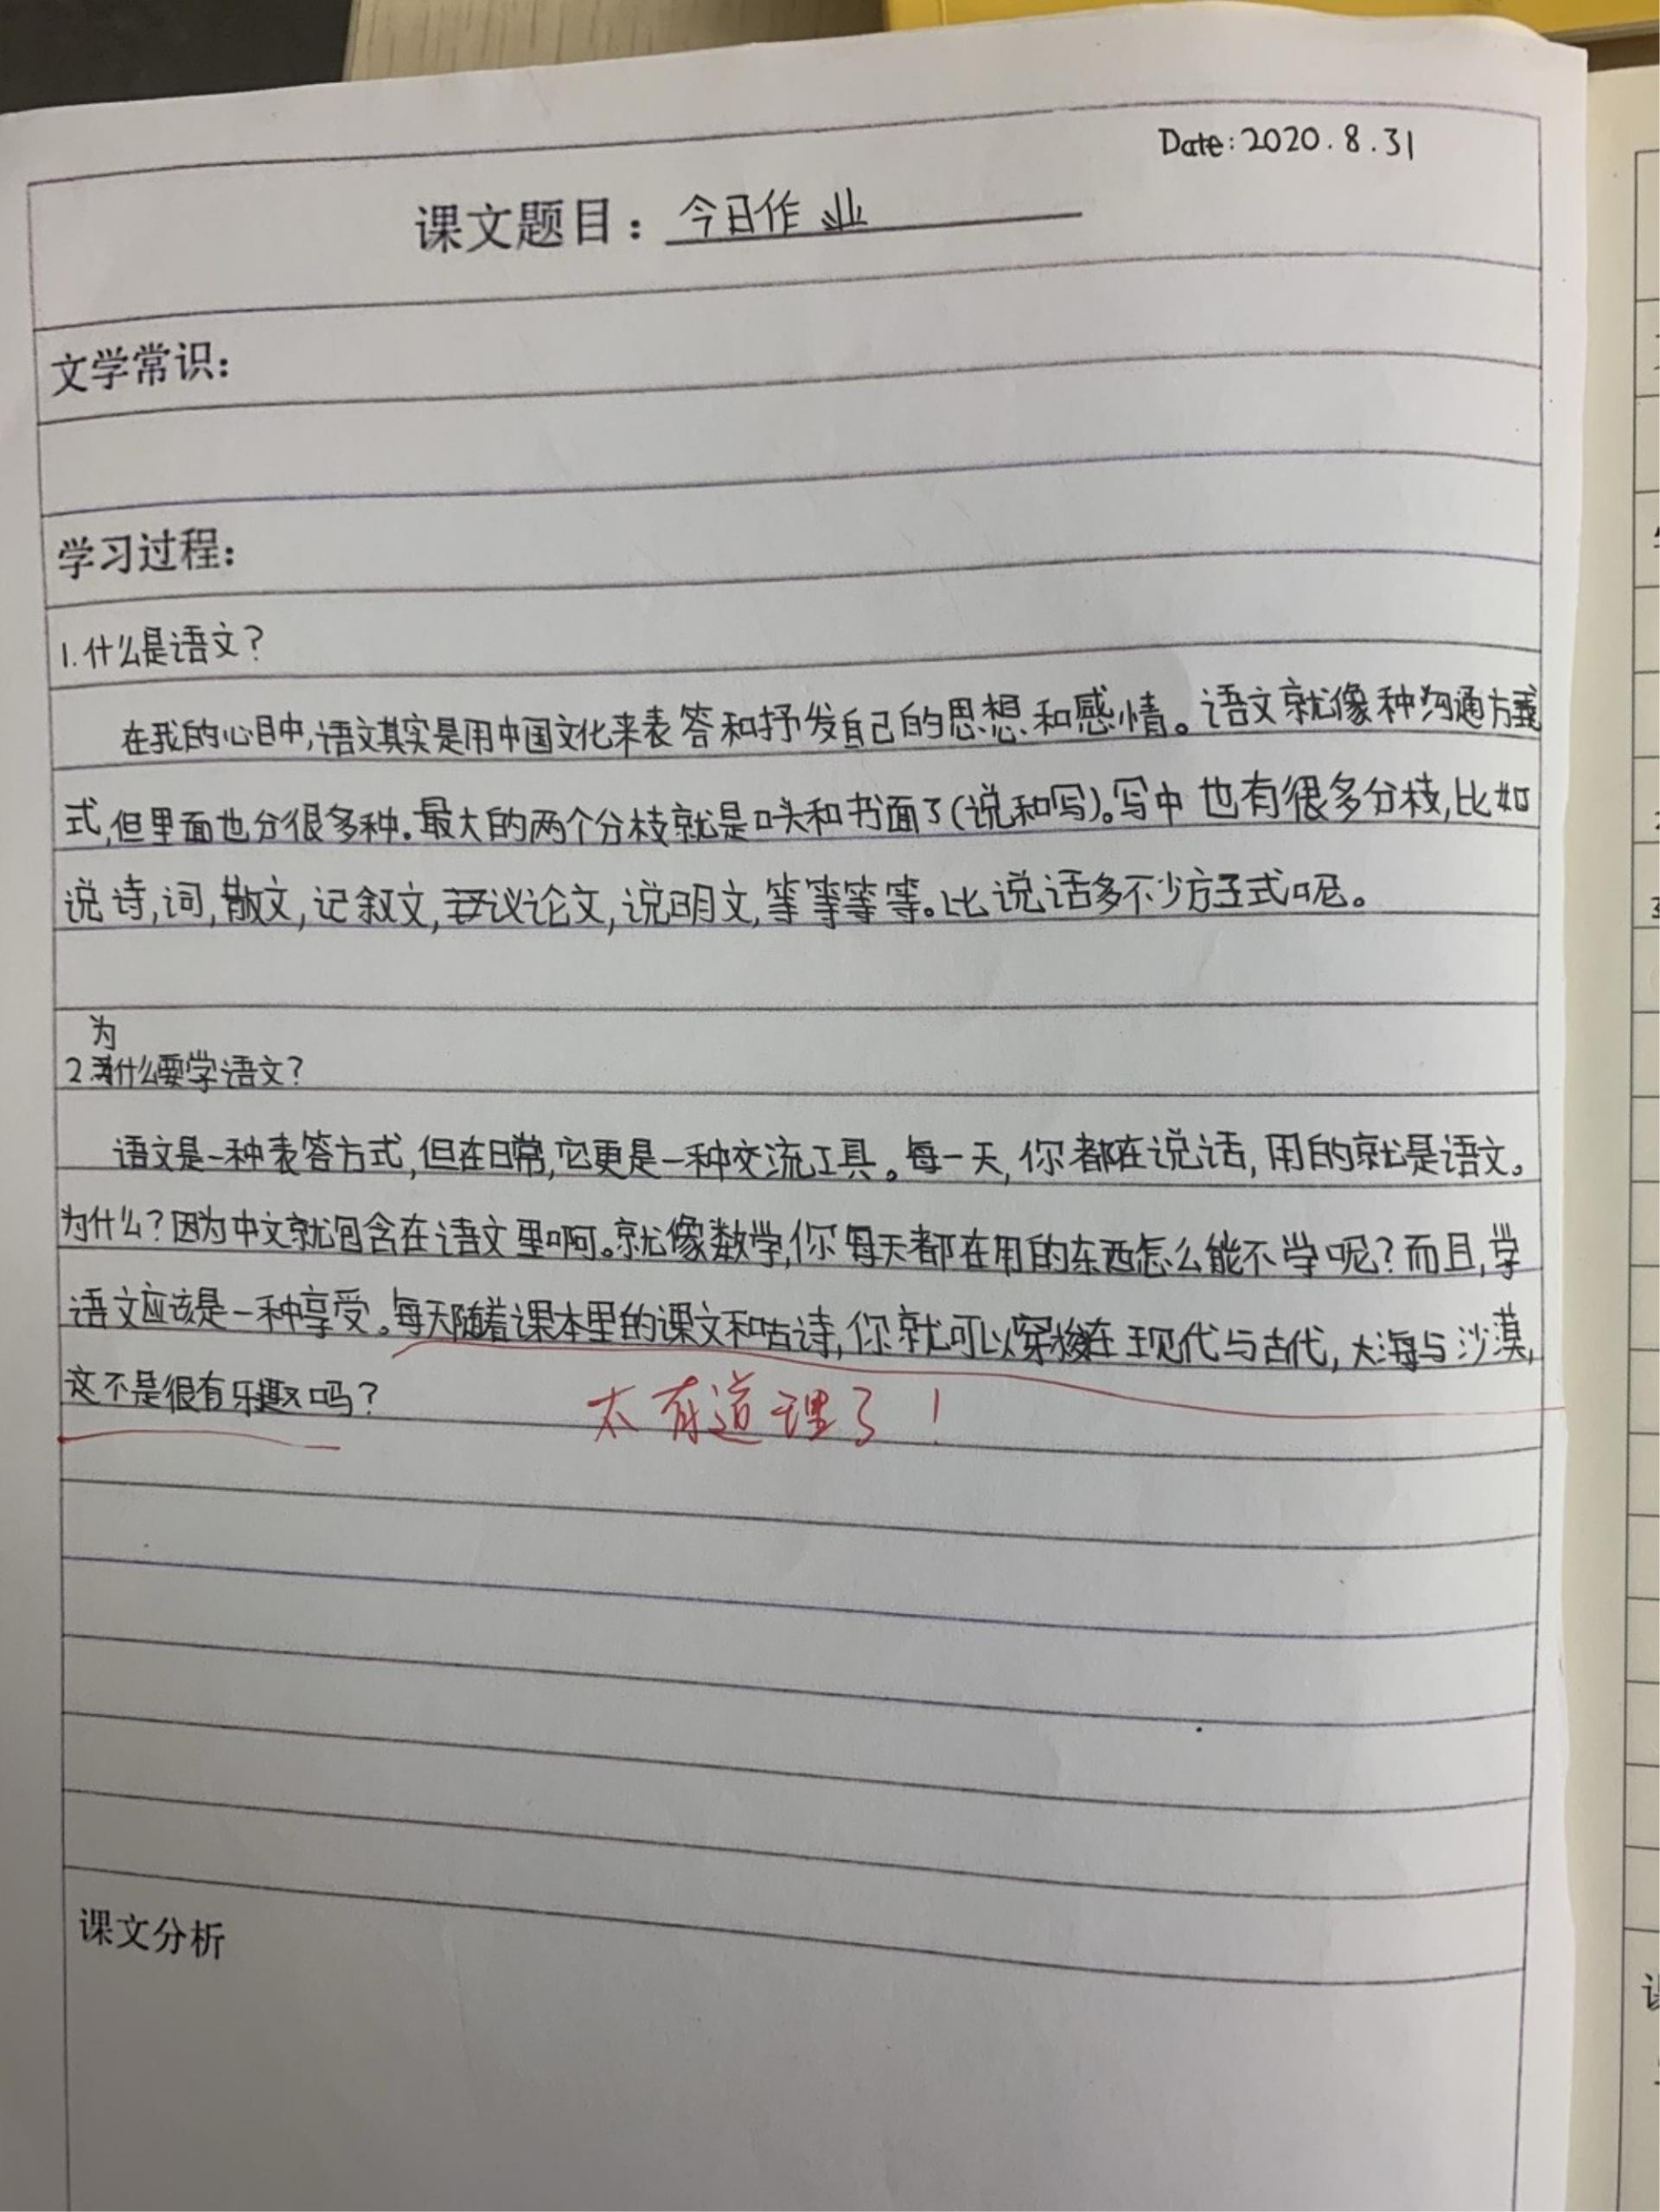 Date: 2020.8.31
课文题目：今日作业
文学常识：
学习过程：
1.什么是语文？
在我的心目中,语文其实是用中国文化来表答和抒发自己的思想和感情。语文就像种沟通方
式,但里面也分很多种.最大的两个分枝就是口头和书面了(说和写)。写中也有很多分枝,比如
说诗,词,散文,记叙文,议论文,说明文,等等等等。比说话多不少方式呢。
为
2.什么要学语文？
语文是一种表答方式,但在日常,它更是一种交流工具。每一天,你都在说话,用的就是语文。
为什么？因为中文就包含在语文里啊。就像数学,你每天都在用的东西怎么能不学呢？而且,学
语文应该是一种享受。每天随着课本里的课文和古诗,你就可以穿梭在现代与古代,大海与沙漠,
这不是很有乐趣吗？
太有道理了！
课文分析